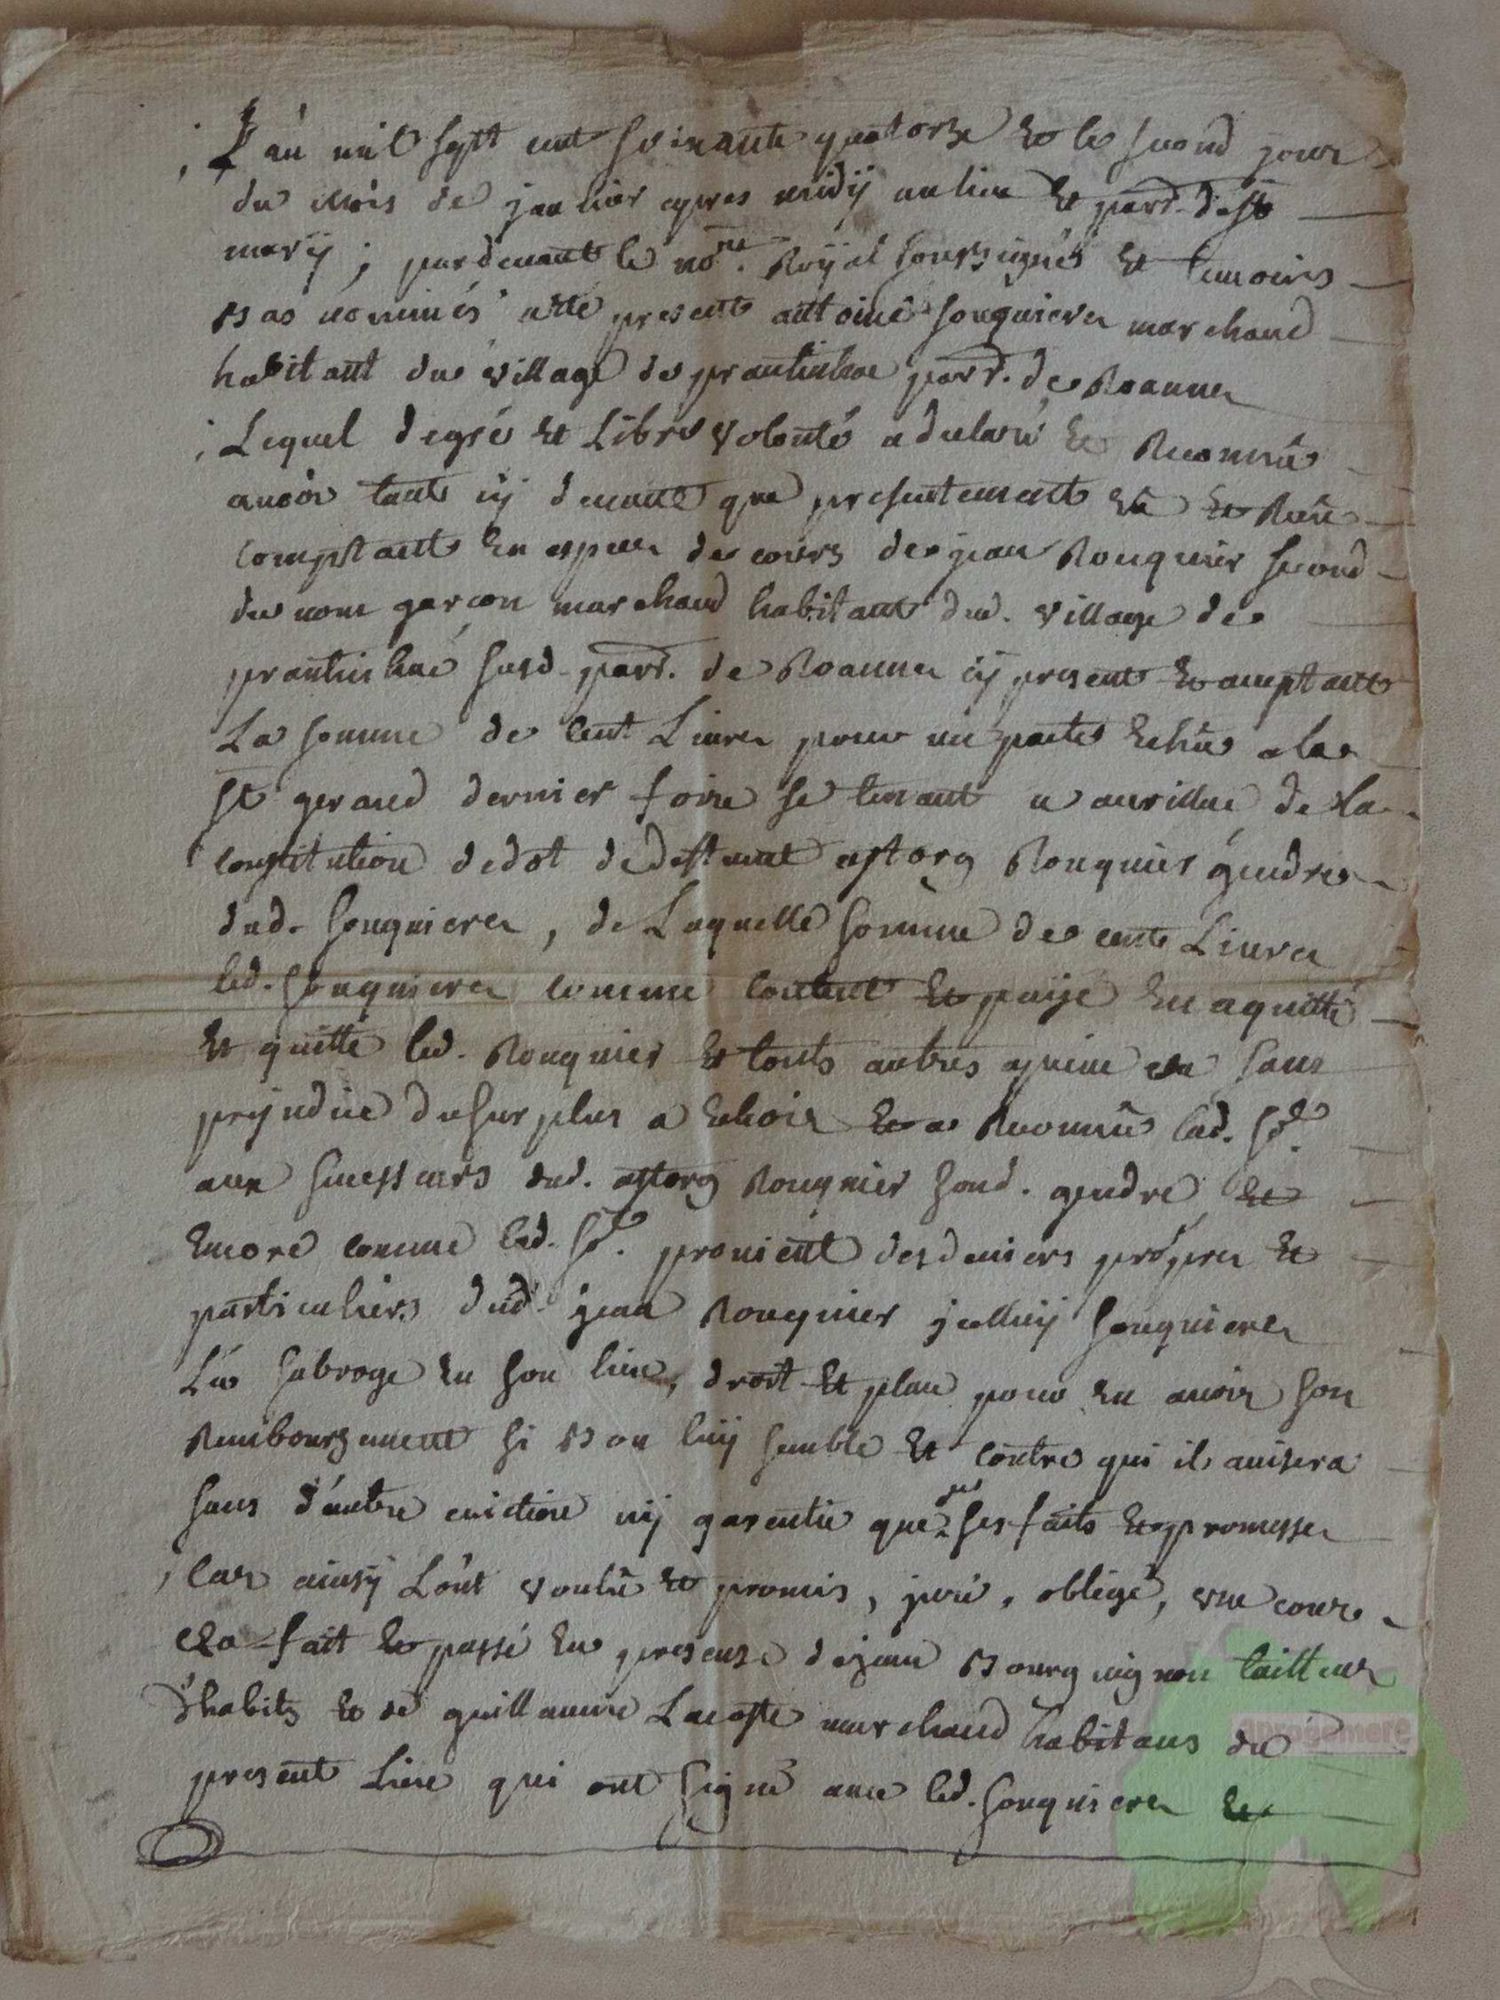 L'an mil sept cent soixante quatorze et le second jour
du mois de janvier apres midÿ au lieu et parr. de st
marÿ ; pardevant le nore. Roÿal soussigné et temoins
bas nommés a été present antoine souquieres marchand
habitant du village de prantinhac parr. de Roannes
Lequel de gré et Libre volonté a declaré et Reconnû
avoir tant cÿ devant que presentement eû et Reçû
comptant en especes de cours de jean Rouquier second
du nom garçon marchand habitant dud. village de
prantinhac susd. parr. de Roannes cÿ present et acceptant
La somme de Cent Livres pour un pacte echû a la
st geraud dernier foire se tenant a aurillac de la
constitution de dot de deffunt astorg Rouquier gendre
dud. souquieres, de Laquelle somme de cent Livres
led. souquieres comme content et paÿé en aquitté
et quitte led. Rouquier et touts autres sans
prejudice du surplus a echoir et a Reconnû lad. se.
aux successeurs dud. astorg Rouquier sond. gendre et
encore comme lad. se. provient des deniers propres et
particuliers dud. jean Rouquier jcelluÿ souquieres
L'a subrogé en son lieu, droit et place pour en avoir son
Remboursement si bon luÿ semble et contre qui il avisera
sans d'autre eviction nÿ garentie que de ses faits et promesses
Car ainsÿ L'ont voulû et promis, juré, obligé, une cour
&a fait et passé en presence de jean Bourguignon tailleur
d'habits et de guillaume Lacoste marchand habitans du
present Lieu qui ont signé avec led. souquieres et
aprogemere